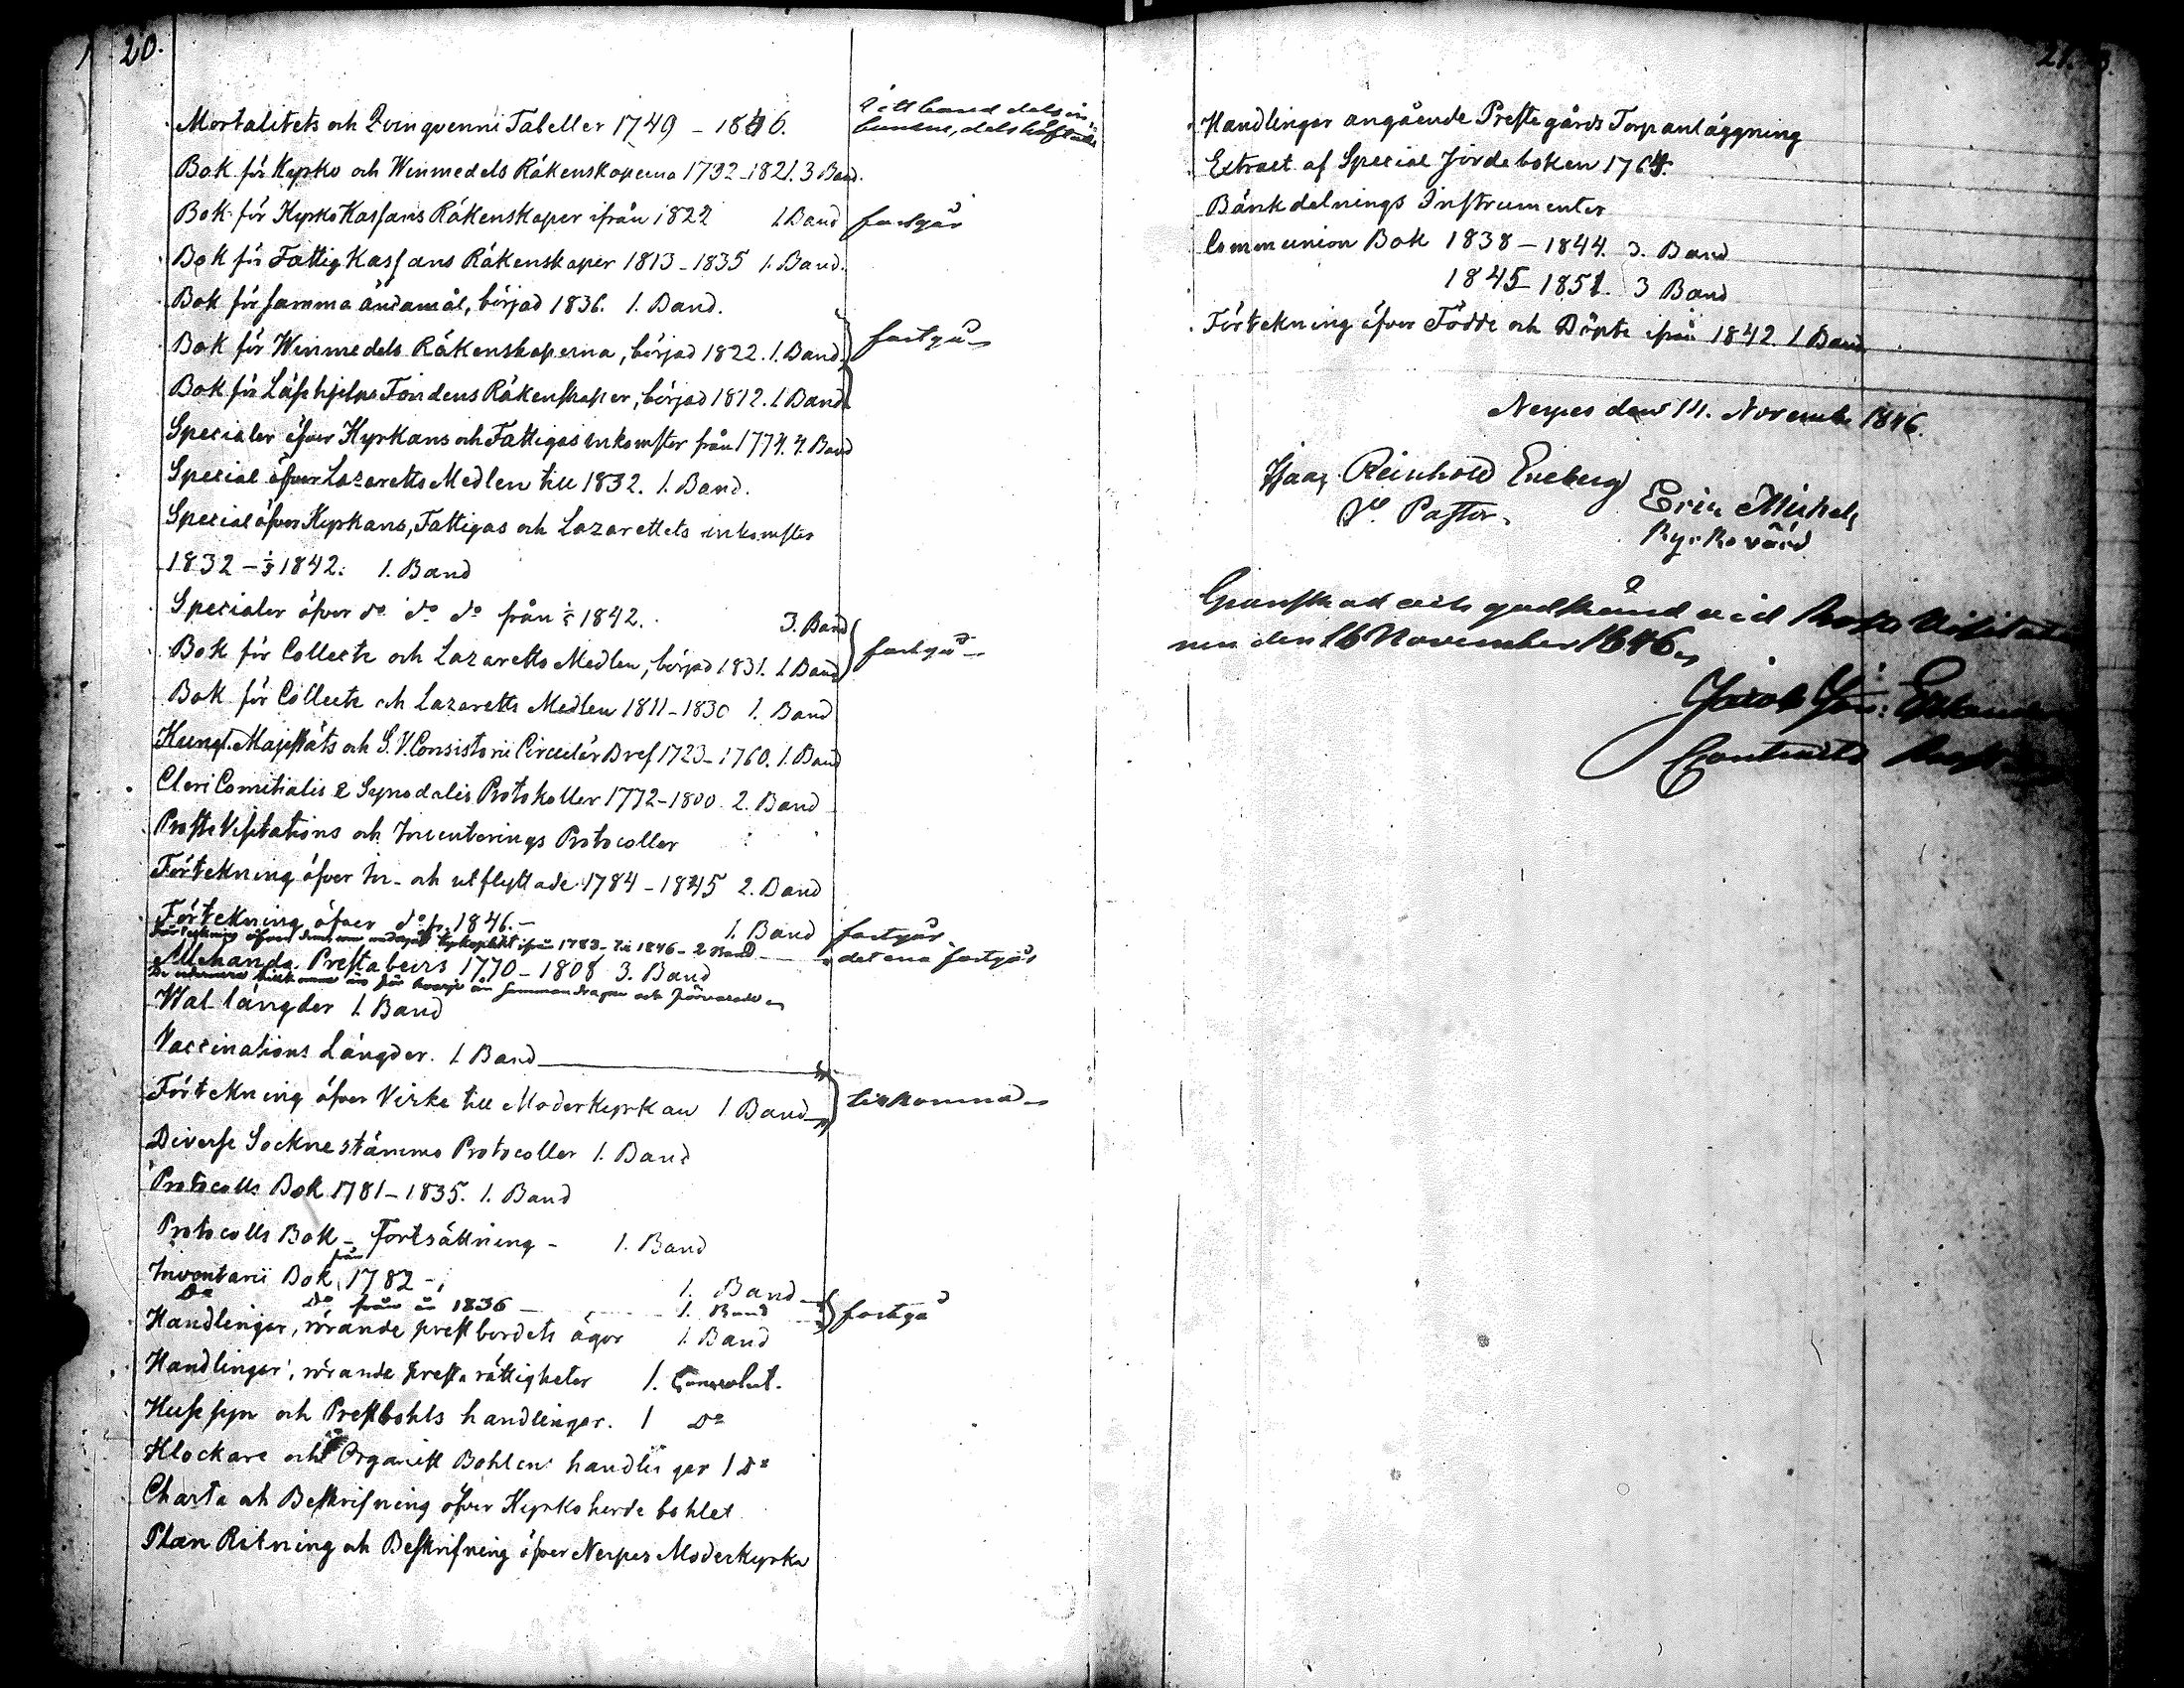 20.
Mortalitets och Qvinqvenni Tabeller 1749 - 1846.
i ett band dels in-
bundne, dels häftade
Bok för Kyrko och Winmedels Räkenskaperna 1732-1821. 3 Band.
Bok för KyrkoKassans Räkenskaper ifrån 1822 1. Band fortgår
Bok för FattigKassans Räkenskaper 1813-1835 1. Band.
Bok för samma ändamål, börjad 1836. 1. Band.
Bok för Winmedels Räkenskaperna, börjad 1822. 1. Band. fortgå
Bok för Läsehjelps Fondens Räkenskaper, börjad 1812. 1. Band
Specialer öfver Kyrkans och Fattigas inkomster från 1774. 4. Band
Special öfver Lazaretts Medlen till 1832. 1. Band.
Special öfver Kyrkans, Fattigas och Lazarettets inkomster
1832 - 1842. 1. Band
Specialer öfver do do do från 1842. 3. Band
Bok för Collect och Lazaretts Medlen, börjad 1831. 1. Band fortgå
Bok för Collect och Lazaretts Medlen 1811-1830 1. Band
Kungl. Majestäts och S. V. Consistorii Circulär Bref 1723-1760. 1. Band
Cleri Comitialis & Synodalis Protokoller 1772-1800. 2. Band
Prosts Visitations och Inventerings Protocoller
Förtekning öfver In- och utflyttade 1784-1845 2. Band
Förtekning öfver do fr. 1846.- 1. Band fortgår
Förtekning öfver dem som undergått kyrkoplikt ifrån 1783- till 1846- 2 Band det ena fortgår
Allehanda Prestabevis 1770-1808 3. Band
De sednare för hvarje år sammandragne och förvarade
Wal längder 1. Band
Vaccinations Längder. 1 Band
Förtekning öfver Virke till Moderkyrkan 1 Band tillkomna
Diverse Sockne stämmo Protocoller 1. Band
Protocolls Bok 1781-1835. 1. Band
Protocolls Bok - fortsättning - 1. Band
Inventarii Bok från 1782 - 1. Band
Do Do från år 1836 - 1. Band fortgå
Handlingar, rörande prestbordets ägor 1. Band
Handlingar, rörande presta rättigheter 1. Convolut.
Husesyn och Prestbohls handlingar. 1 Do
Klockare och Organist Bohlens handlingar 1 Do
Charta och Beskrifning öfver Kyrkoherde bohlet
Plan Ritning och Beskrifning öfver Nerpes Moderkyrka
21.
Handlingar angående Prestegårds Torpanläggning
Extract af Special Jordeboken 1764.
Bänkdelnings Instrumenter
Communion Bok 1838-1844. 3. Band
1845-1851. 3 Band
Förtekning öfver Födde och Döpte ifrån 1842. 1 Band
Nerpes den 14. November 1846.
Isaac Reinhold Eneberg
Vice Pastor.
Eric Michels
Kyrkovärd
Granskad och godkänd vid Prosts Visitatio
nen den 16 November 1846
Jacob
Contracts Prost